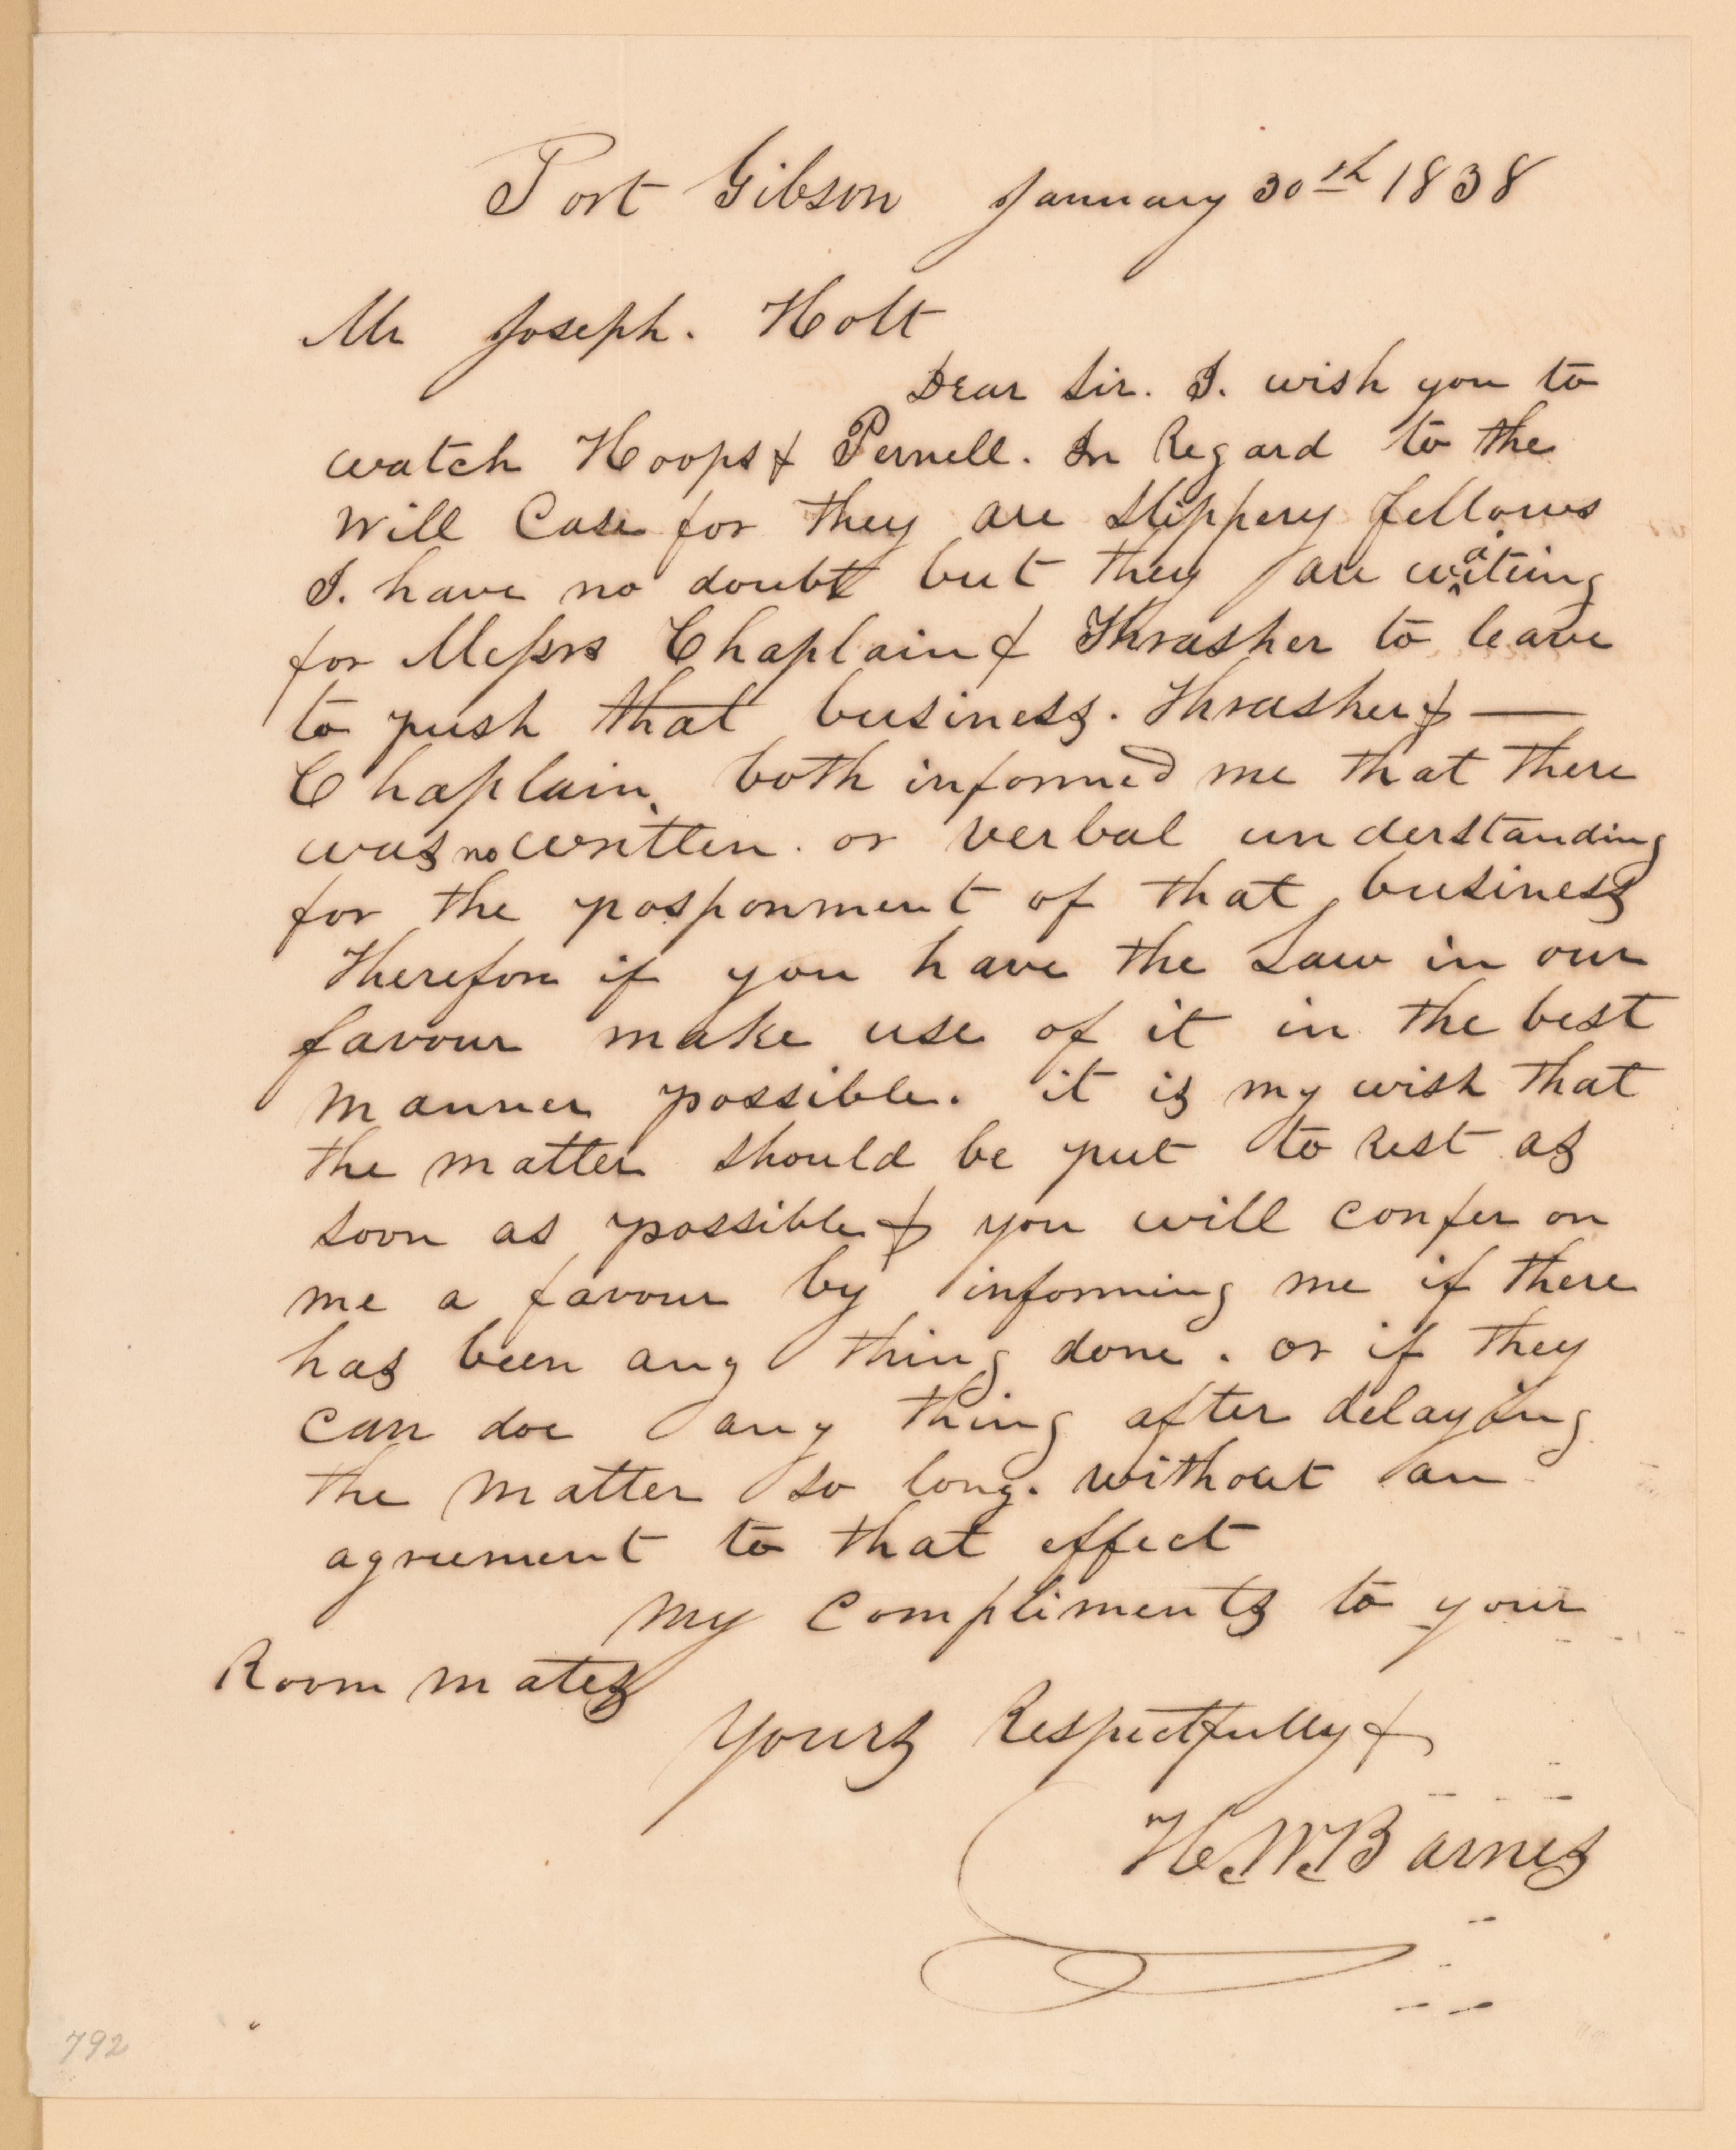 Port Gibson January 30th 1838
Mr Joseph. Holt
Dear Sir. I. wish you to
watch Hoops & Pernell. In Regard to the
Will Case for they are slippery fellows
I. have no doubt but they are waiting
for Messrs Chaplain & Thrasher to leave
to push that business. Thrasher & —
Chaplain, both informed me that there
was no written. or verbal understanding
for the posponment of that business
Therefore if you have the Law in our
favour make use of it in the best
manner possible. it is my wish that
the matter should be put to rest as
soon as possible & you will confer on
me a favour by informing me if there
has been any thing done. or if they
can doe any thing after delaying
the matter so long. without an
agreement to that effect
My compliments to your
Room mates
Yours Respectfully &
H. W. Barnes
792